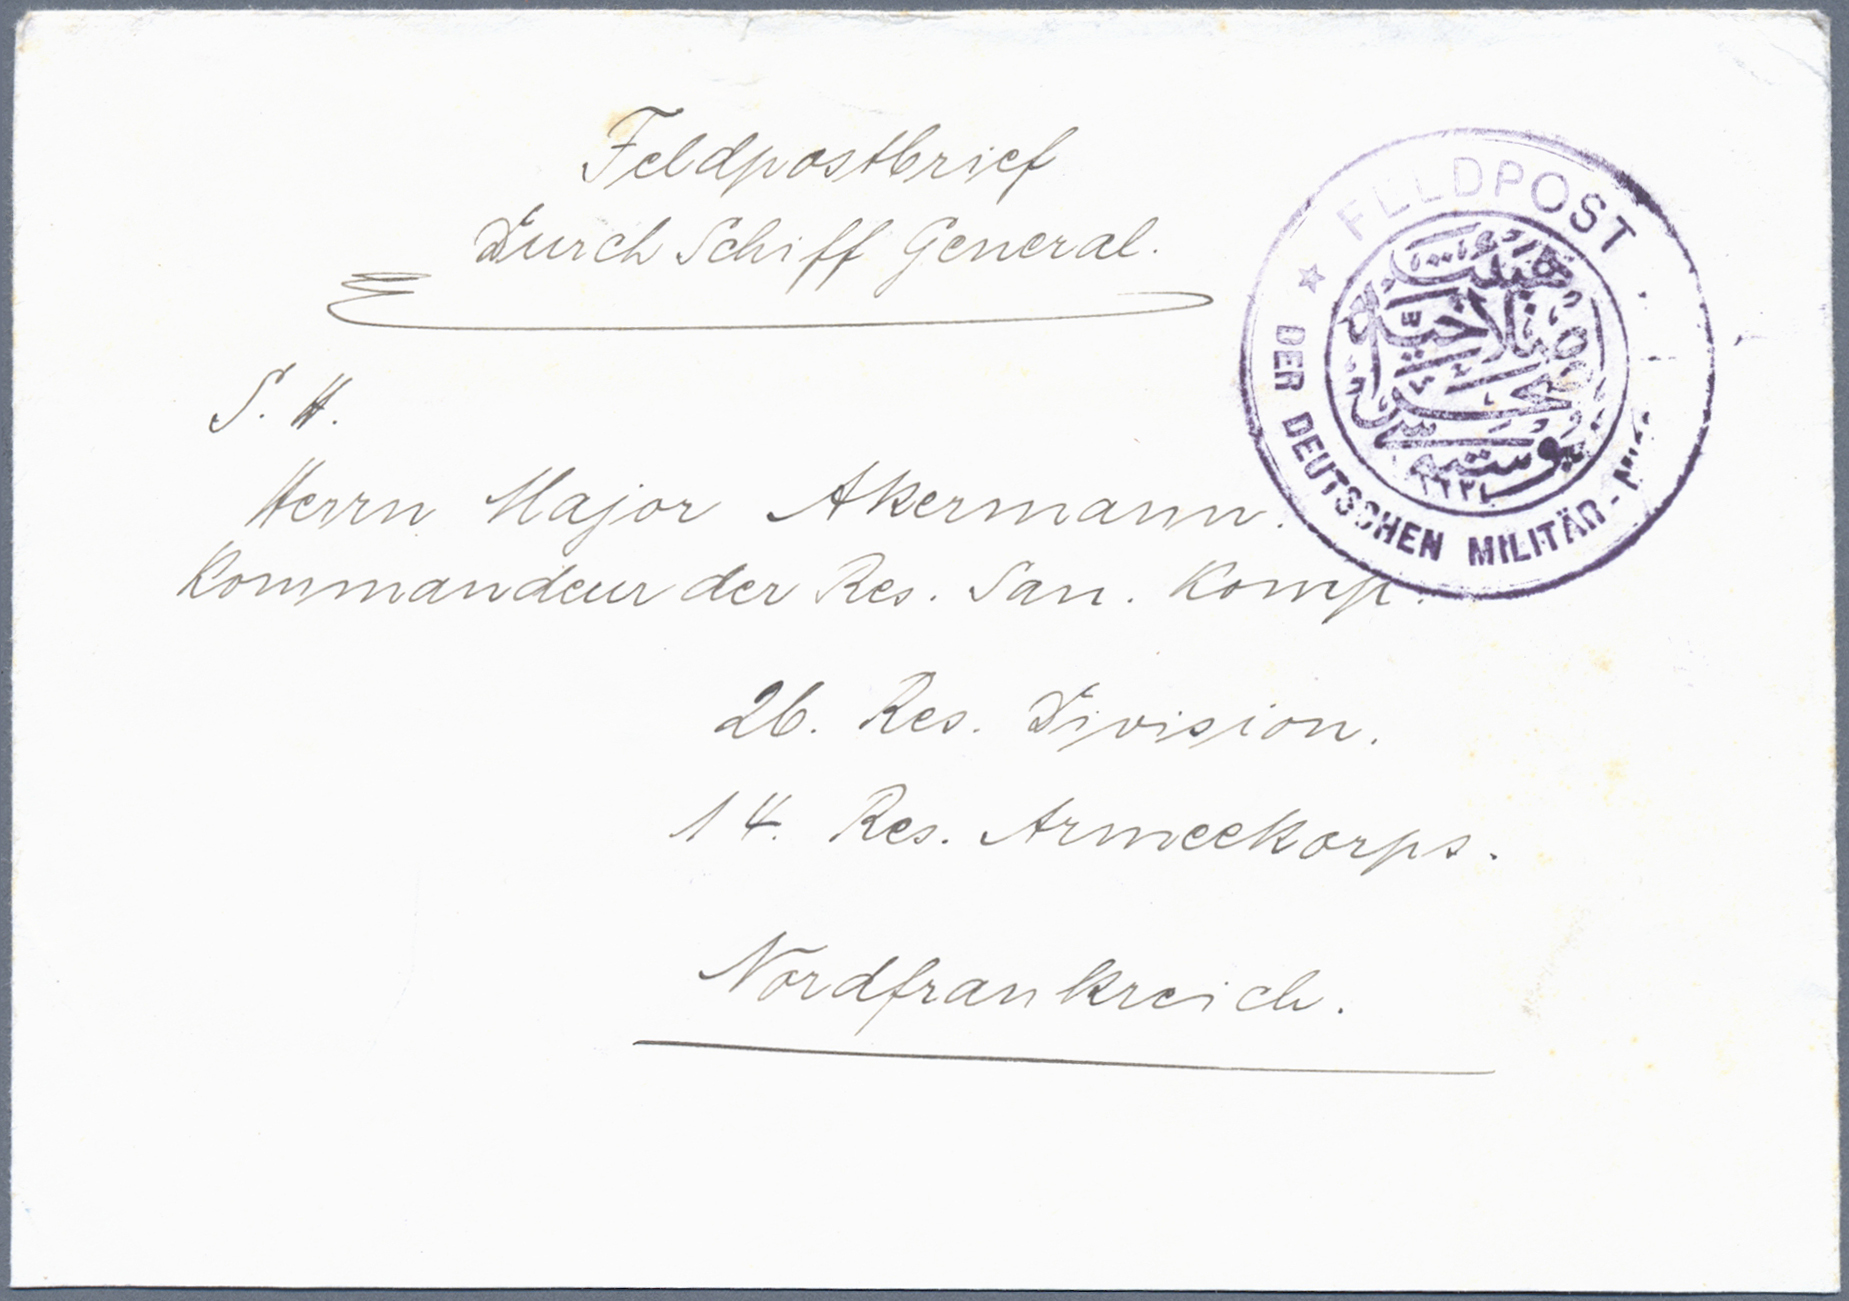 Feldpostbrief
Durch Schiff General.
S. H.
Herrn Major Akermann.
Kommandeur der Res. San. Komp.
26. Res. Division.
14. Res. Armeekorps.
Nordfrankreich.
FELDPOST
DER DEUTSCHEN MILITÄR-
هيئت
اصلاحيه
پوستهسی